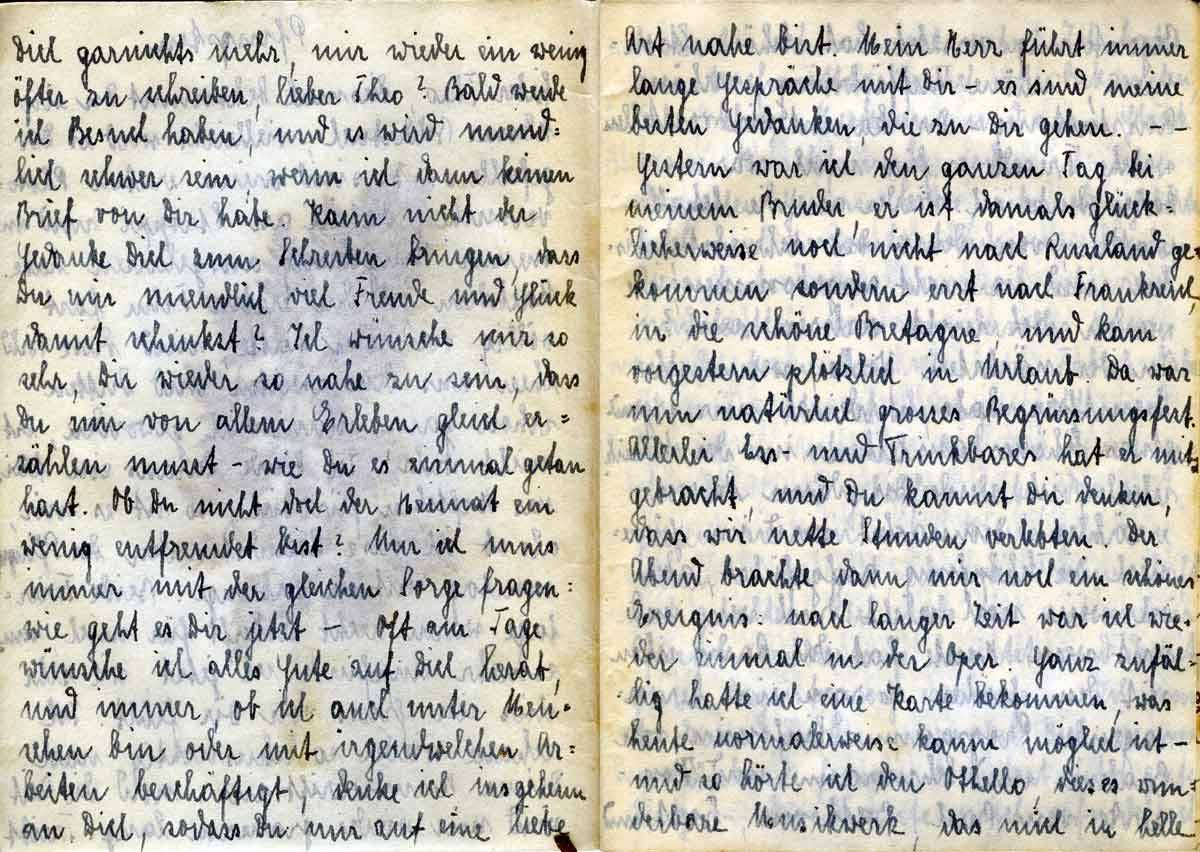 Dich garnichts mehr, mir wieder ein wenig
öfter zu schreiben, lieber Theo? Bald werde
ich Besuch haben, und es wird unend=
lich schwer sein, wenn ich dann keinen
Brief von Dir habe. Kann nicht der
Gedanke Dich zum Schreiben bringen, dass
Du mir unendlich viel Freude und Glück
damit schenkst? Ich wünsche mir so
sehr, Dir wieder so nahe zu sein, dass
Du mir von allem Erleben gleich er=
zählen musst - wie Du es einmal getan
hast. Ob Du nicht doch der Heimat ein
wenig entfremdet bist? Nur ich muss
immer mit der gleichen Sorge fragen:
wie geht es Dir jetzt - Oft am Tage
wünsche ich alles Gute auf Dich herab,
und immer, ob ich auch unter Men=
schen bin oder mit irgendwelchen Ar=
beiten beschäftigt, denke ich insgeheim
an Dich, sodass Du mir auf eine liebe
Art nahe bist. Mein Herz führt immer
lange Gespräche mit Dir - es sind meine
besten Gedanken, die zu Dir gehen. - -
Gestern war ich den ganzen Tag bei
meinem Bruder, er ist damals glück-
licherweise noch nicht nach Russland ge-
kommen sondern erst nach Frankreich,
in die schöne Bretagne, und kam
vorgestern plötzlich in Urlaub. Da war
nun natürlich grosses Begrüssungsfest.
Allerlei Ess- und Trinkbares hat er mit-
gebracht, und Du kannst Dir denken,
dass wir nette Stunden verlebten. Der
Abend brachte dann mir noch ein schönes
Ereignis: nach langer Zeit war ich wie-
der einmal in der Oper. Ganz zufäl-
lig hatte ich eine Karte bekommen, was
heute normalerweise kaum möglich ist -
und so hörte ich den Othello, dieses wun-
derbare Musikwerk, das mich in helle